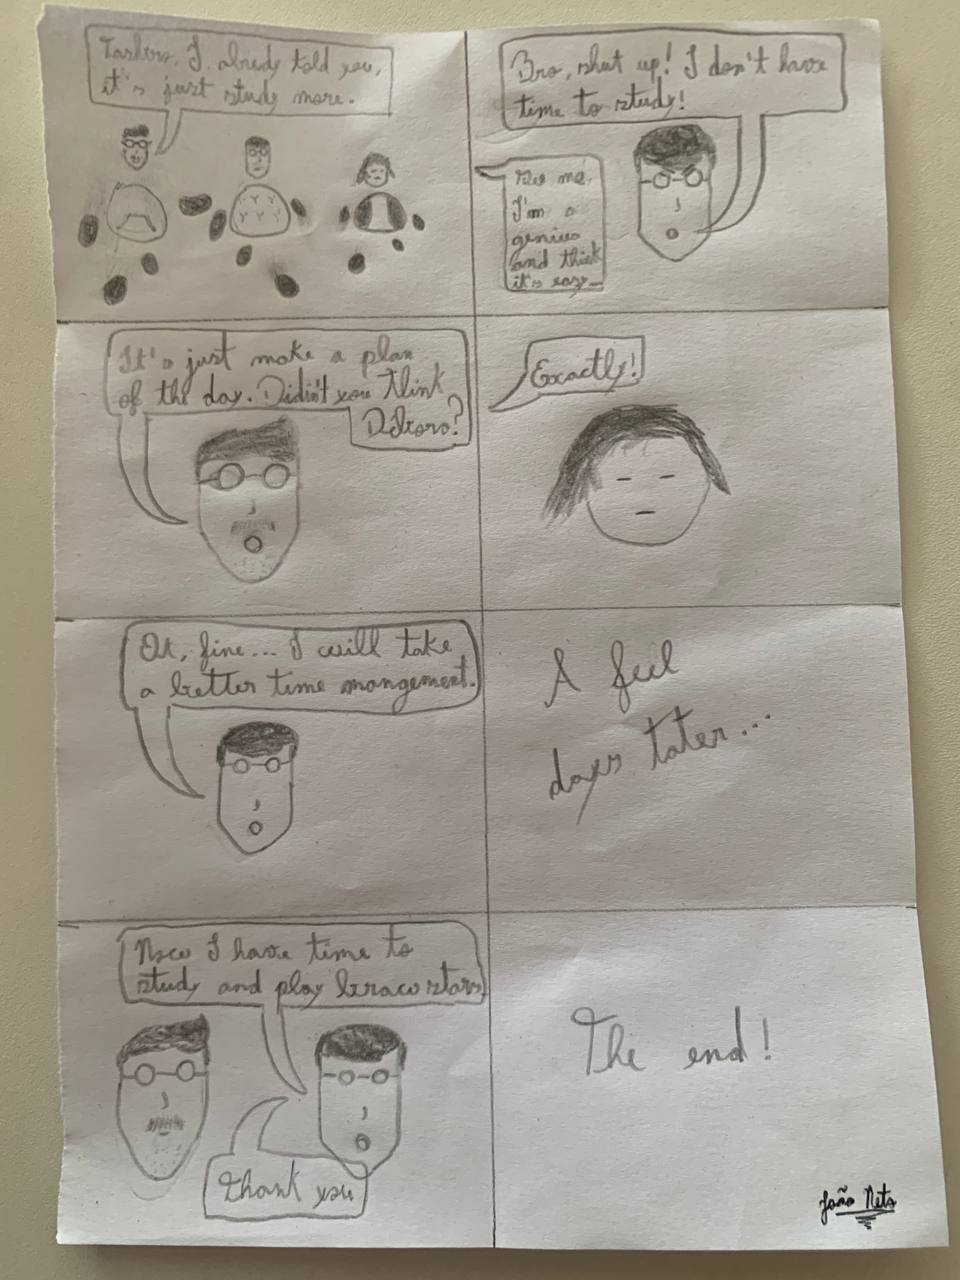 I already told you,
it's just study more.
Bro, shut up! I don't have
time to study!
me,
I'm a
genius
and think
it's easy...
It's just make a plan
of the day. Didin't you think
Exactly!
Ok, fine... I will take
a better time mangement.
A feel
days tater...
Now I have time to
study and play braw stars
Thank you
The end!
João Neto